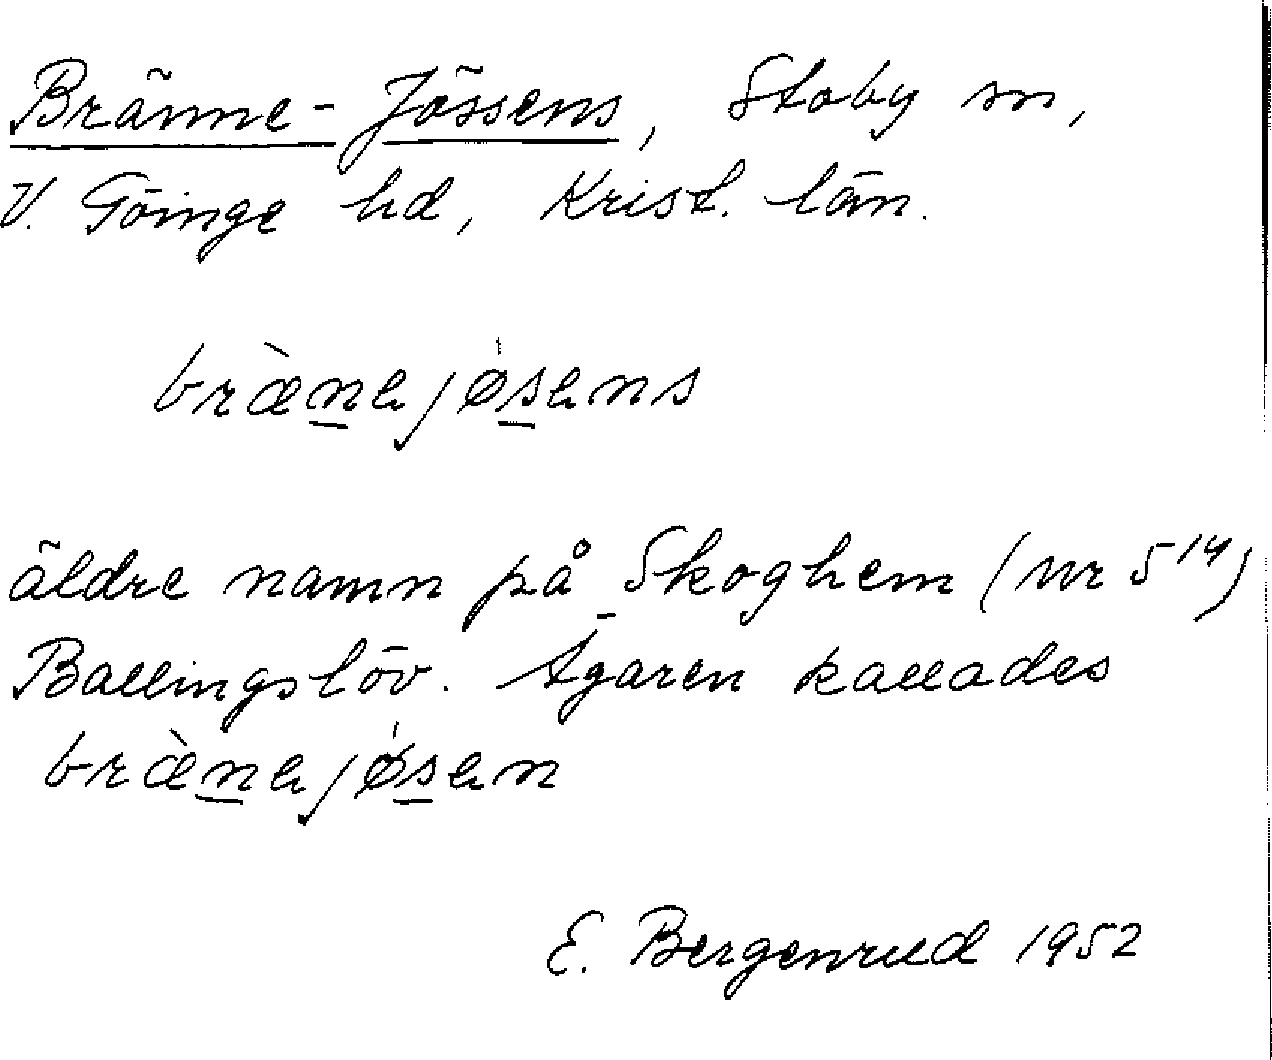 Bränne-Jössens, Stoby sn,
V. Göinge hd, Krist. län.
bræ̀n̲ejø̍s̲ens
äldre namn på Skoghem (nr 5¹⁴)
Ballingslöv. Ägaren kallades
bræ̀n̲ejø̍s̲en
E. Bergenrud 1952